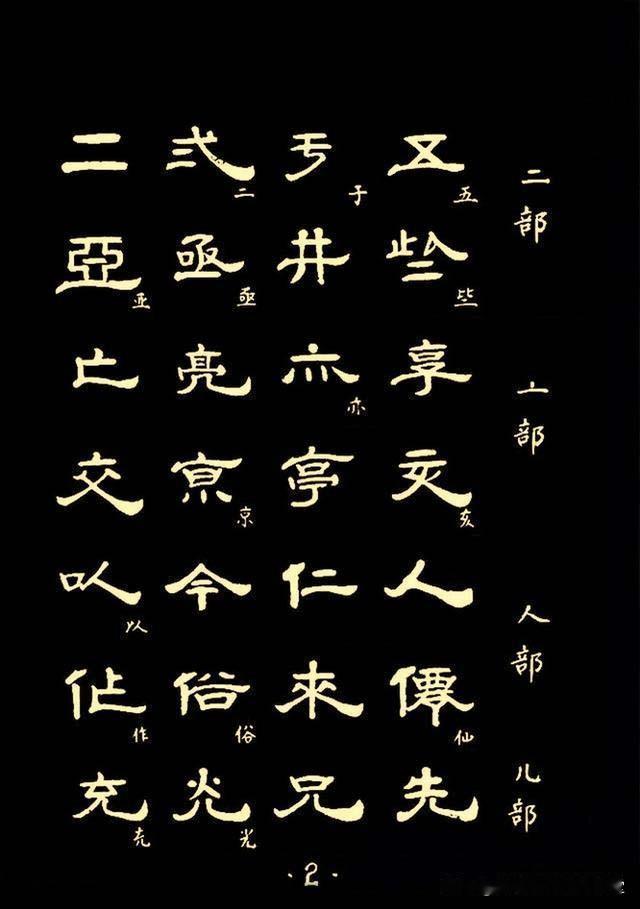 二 弍 亐 五
二 于 五
二部
亞 亟 井 些
亚 亟 些
亡 亮 亦 享
亦
亠部
交 亰 亭 亥
京 亥
以 今 仁 人
以
人部
作 俗 來 僊
作 俗 仙
充 光 兄 先
充 光
儿部
·2·